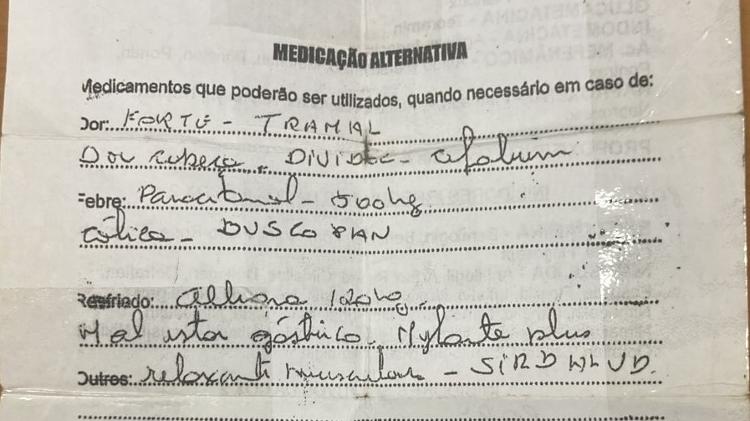 MEDICAÇÃO ALTERNATIVA
Medicamentos que poderão ser utilizados, quando necessário em caso de:
Dor: FORTE - TRAMAL
Dor cabeça - cefalium
Febre: Paracetamol - 500mg
Cólica - BUSCOPAN
Resfriado: Allegra 120mg
Mal estar gástrico. Mylanta plus
Outros: relaxante muscular - SIRDALUD.